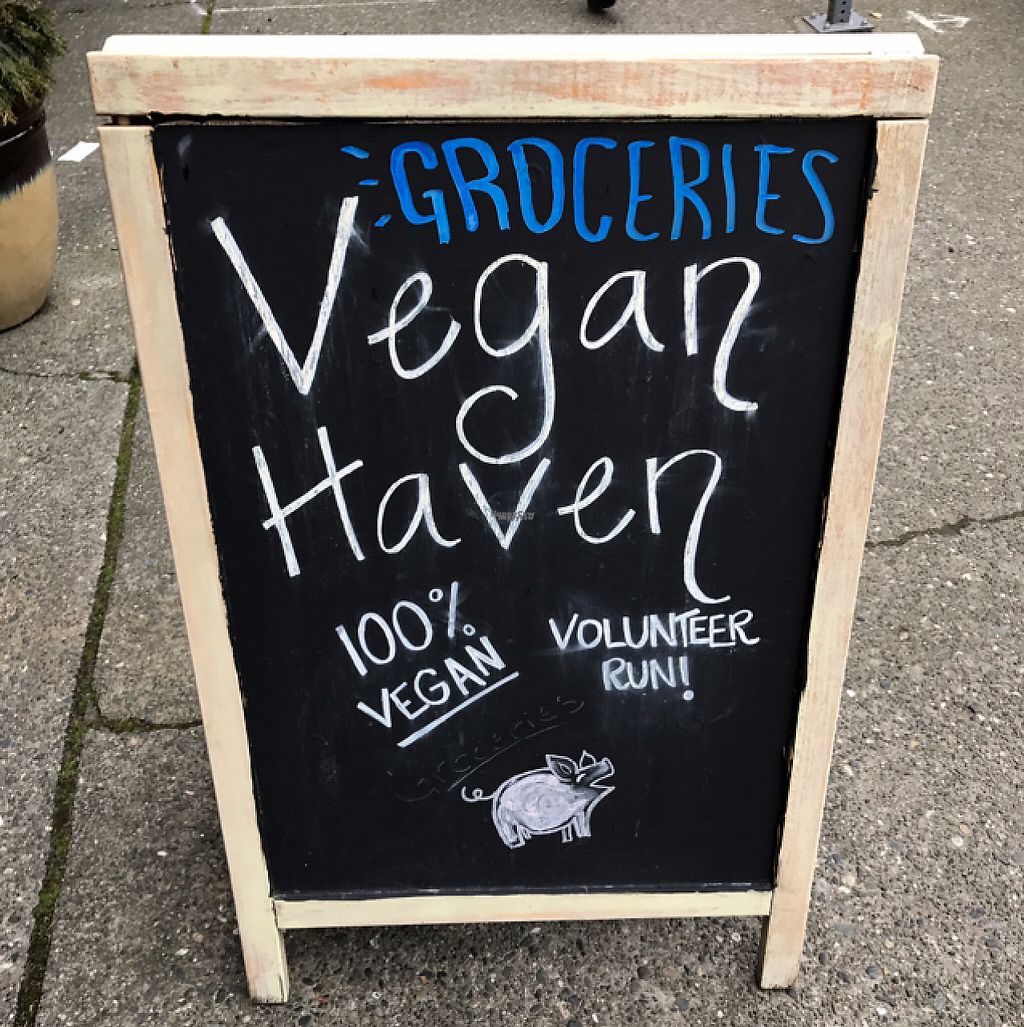 GROCERIES
Vegan
Haven
100%
VEGAN
VOLUNTEER
RUN!
Groceries